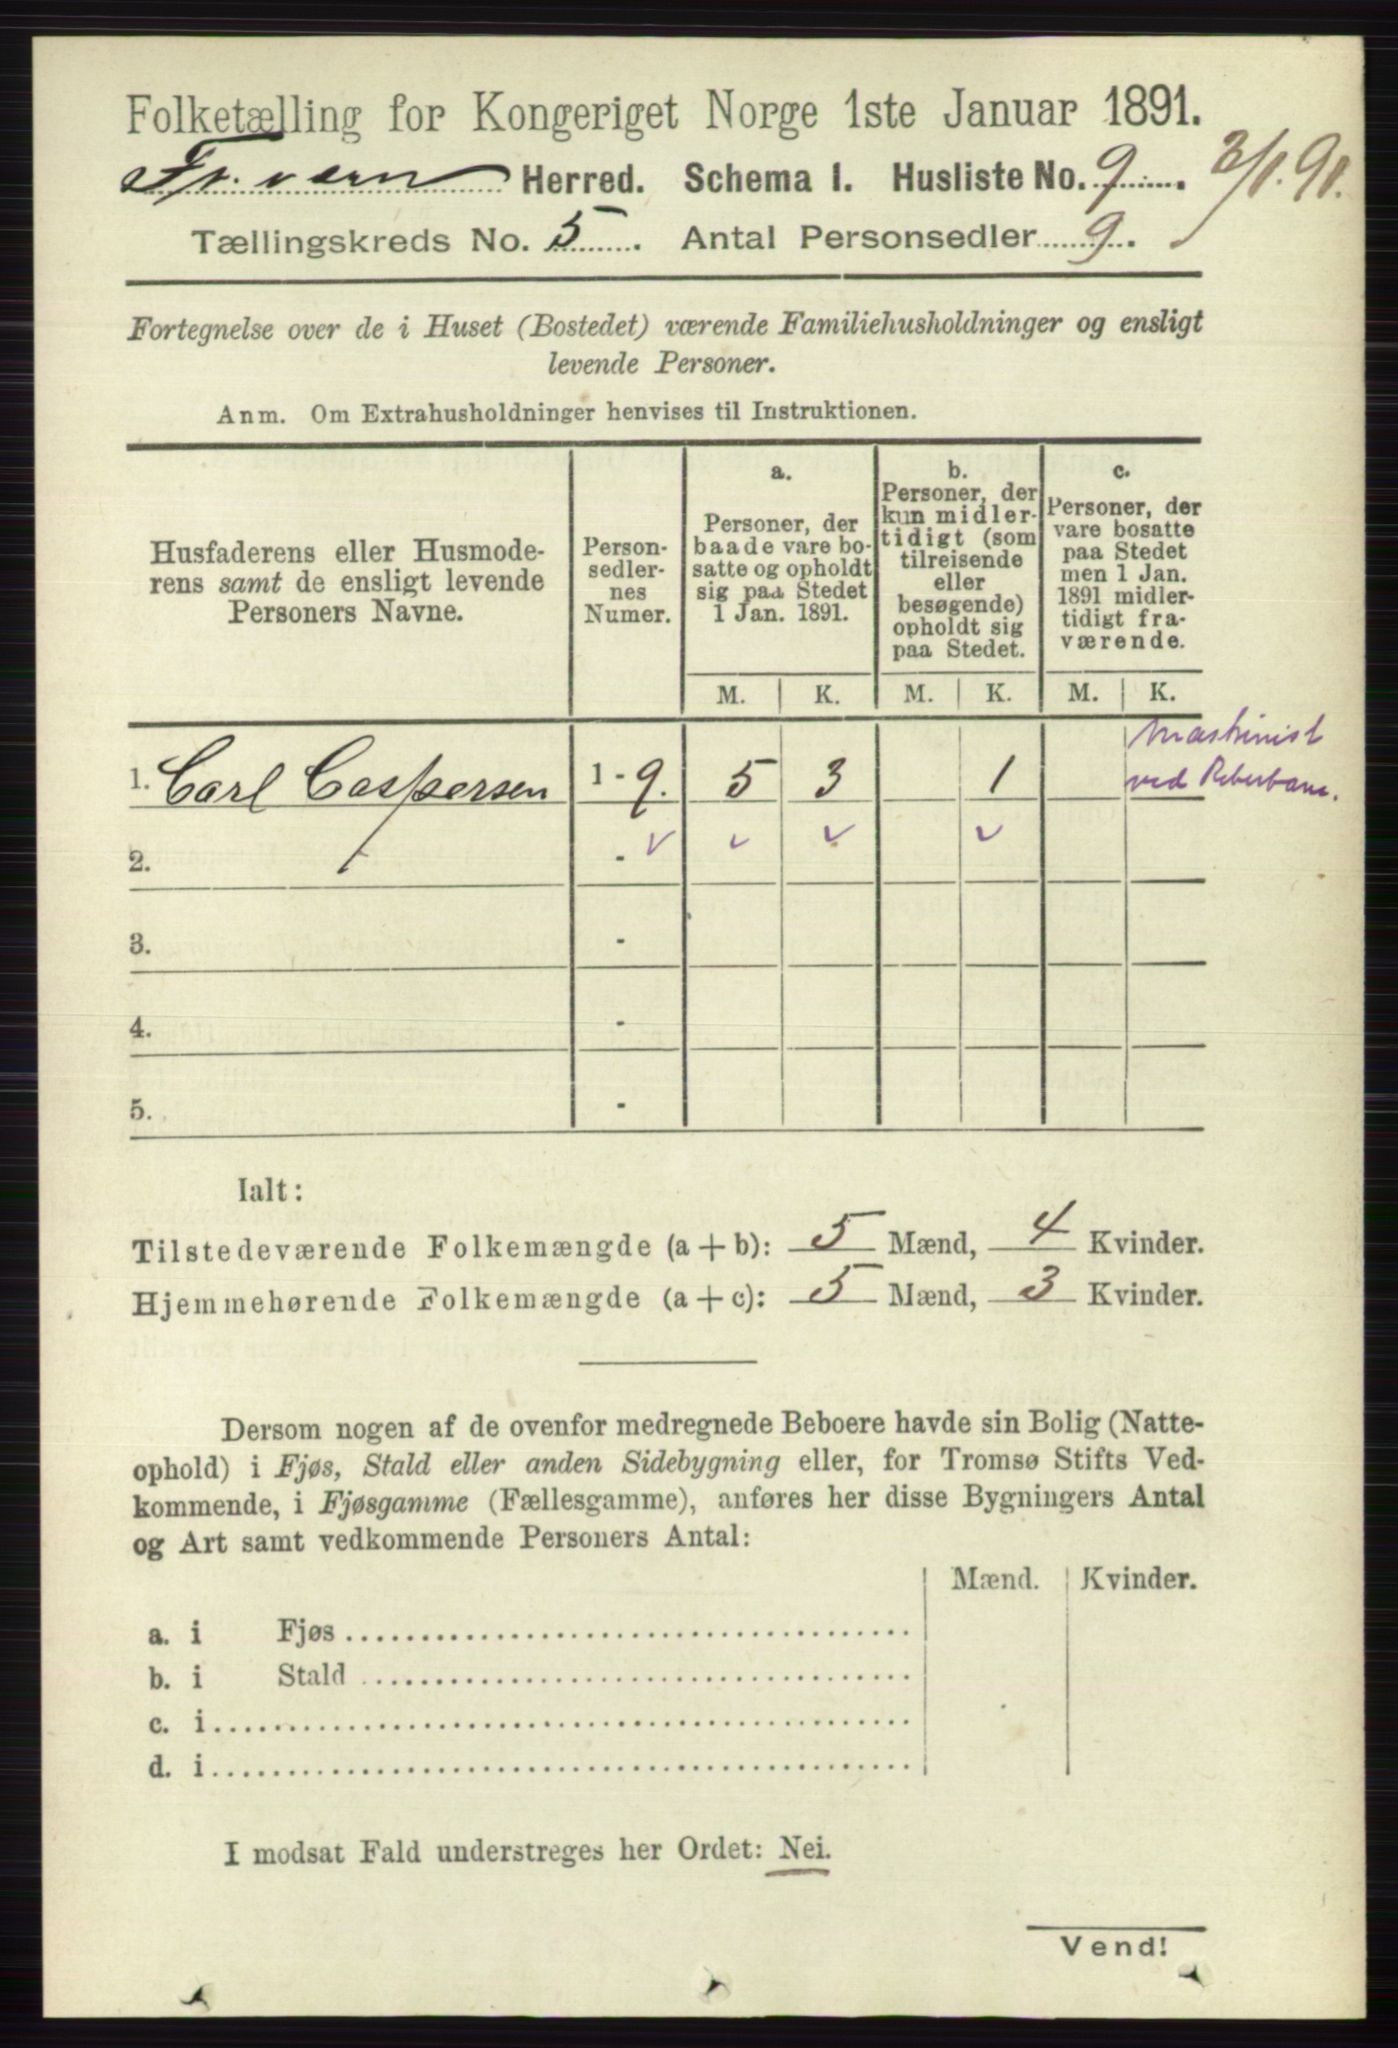 Folketælling for Kongeriget Norge 1ste Januar 1891.
Fr. værn Herred. Schema I. Husliste No. 9. 2/1. 91.
Tællingskreds No. 5. Antal Personsedler 9.
Fortegnelse over de i Huset (Bostedet) værende Familiehusholdninger og ensligt
levende Personer.
Anm. Om Extrahusholdninger henvises til Instruktionen.
Husfaderens eller Husmode-
rens samt de ensligt levende
Personers Navne.
Person-
sedler-
nes
Numer.
a.
Personer, der
baade vare bo-
satte og opholdt
sig paa Stedet
1 Jan. 1891.
b.
Personer, der
kun midler-
tidigt (som
tilreisende
eller
besøgende)
opholdt sig
paa Stedet.
c.
Personer, der
vare bosatte
paa Stedet
men 1 Jan.
1891 midler-
tidigt fra-
værende.
M. K. M. K. M. K.
Maskinist
1. Carl Caspersen 1 - 9. 5 3 1 ved Reberbane.
2. -
3. -
4. -
5. -
Ialt:
Tilstedeværende Folkemængde (a + b): 5 Mænd, 4 Kvinder.
Hjemmehørende Folkemængde (a + c): 5 Mænd, 3 Kvinder.
Dersom nogen af de ovenfor medregnede Beboere havde sin Bolig (Natte-
ophold) i Fjøs, Stald eller anden Sidebygning eller, for Tromsø Stifts Ved-
kommende, i Fjøsgamme (Fællesgamme), anføres her disse Bygningers Antal
og Art samt vedkommende Personers Antal:
Mænd. Kvinder.
a. i Fjøs
b. i Stald
c. i
d. i
I modsat Fald understreges her Ordet: Nei.
Vend!